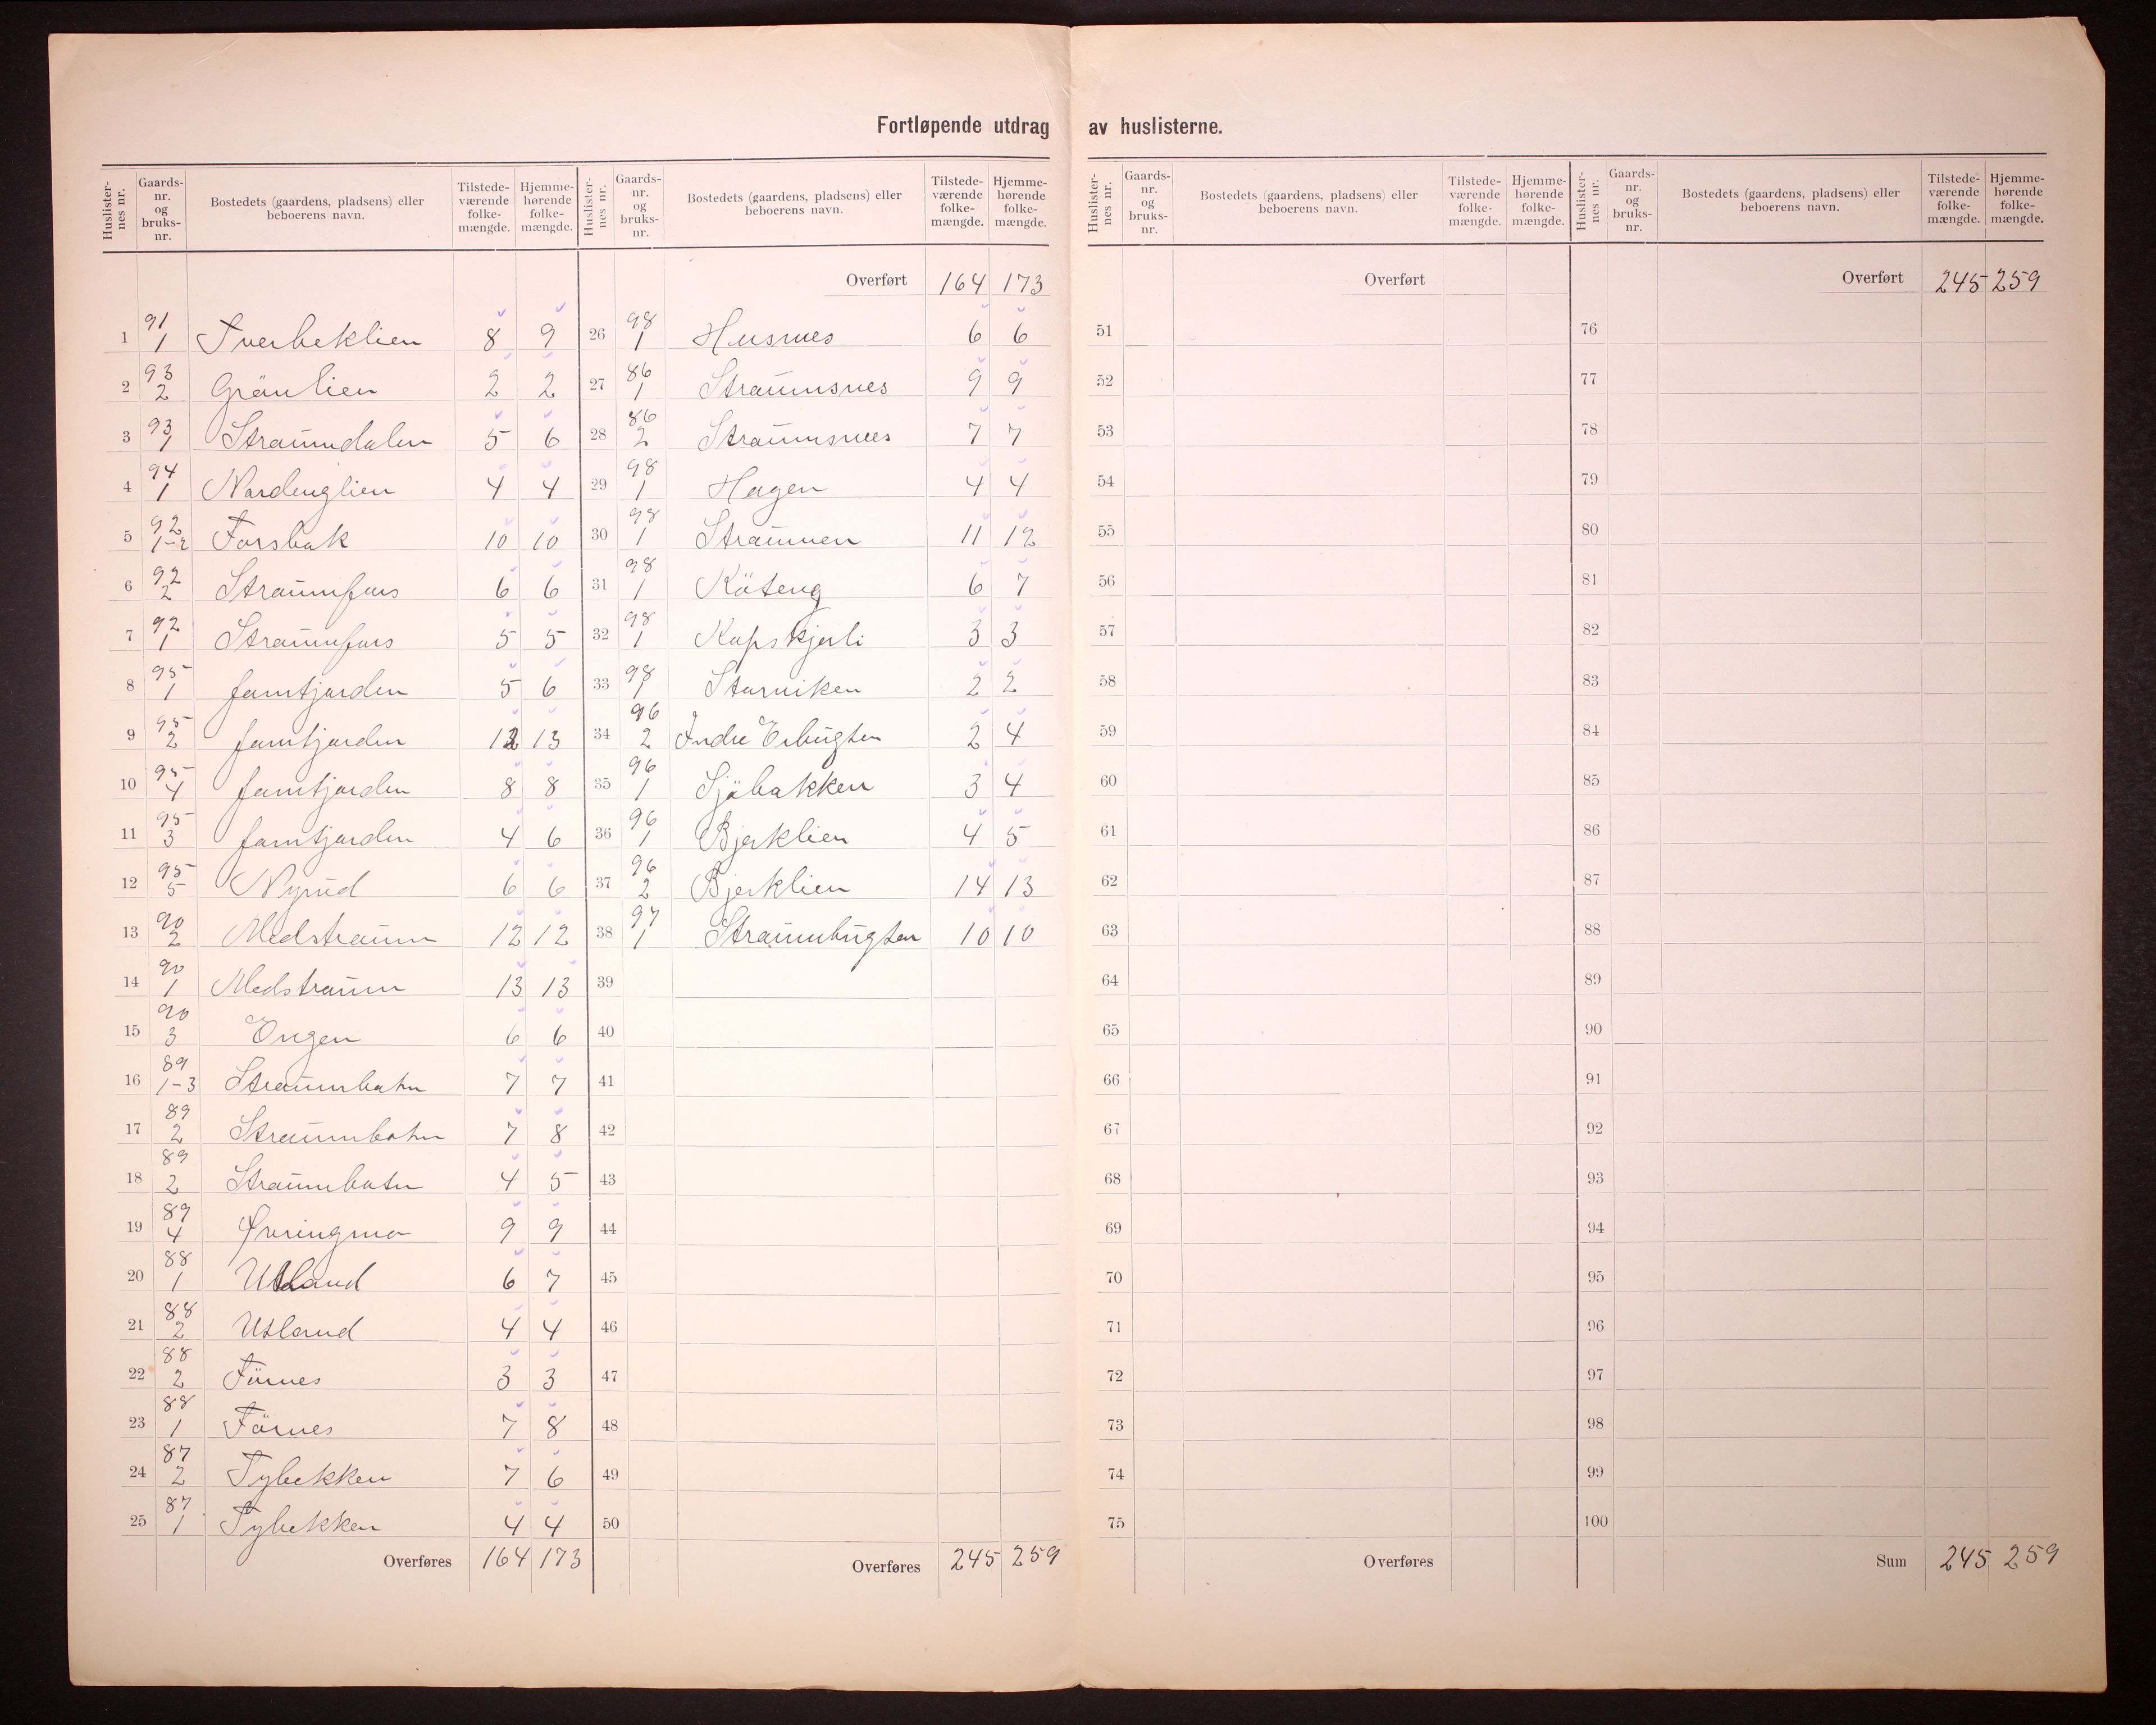 Fortløpende utdrag av huslisterne.
Huslisternes nr. Gaards-nr. og bruks-nr. Bostedets (gaardens, pladsens) eller beboerens navn. Tilstede-værende folke-mængde. Hjemme-hørende folke-mængde.
1 91/1 Tverbeklien 8 9
2 93/2 Grönlien 2 2
3 93/1 Straumdalen 5 6
4 94/1 Nordenglien 4 4
5 92/1-2 Forsbak 10 10
6 92/2 Straumfors 6 6
7 92/1 Straumfors 5 5
8 95/1 Jamtjorden 5 6
9 95/2 Jamtjorden 13 13
10 95/4 Jamtjorden 8 8
11 95/3 Jamtjorden 4 6
12 95/5 Nyrud 6 6
13 90/2 Medstraum 12 12
14 90/1 Medstraum 13 13
15 90/3 Engen 6 6
16 89/1-3 Straumbotn 7 7
17 89/2 Straumbotn 7 8
18 89/2 Straumbotn 4 5
19 89/4 Øveringmo 9 9
20 88/1 Utland 6 7
21 88/2 Utland 4 4
22 88/2 Förnes 3 3
23 88/1 Förnes 7 8
24 87/2 Tybekken 7 6
25 87/1 Tybekken 4 4
Overføres 164 173
Huslisternes nr. Gaards-nr. og bruks-nr. Bostedets (gaardens, pladsens) eller beboerens navn. Tilstede-værende folke-mængde. Hjemme-hørende folke-mængde.
Overført 164 173
26 98/1 Husnes 6 6
27 86/1 Straumsnes 9 9
28 86/2 Straumsnes 7 7
29 98/1 Hagen 4 4
30 98/1 Straumen 11 12
31 98/1 Köteng 6 7
32 98/1 Kopskjerli 3 3
33 98/1 Storviken 2 2
34 96/2 Indre Erbugten 2 4
35 96/1 Sjöbakken 3 4
36 96/1 Bjerklien 4 5
37 96/2 Bjerklien 14 13
38 97/1 Straumbugten 10 10
39
40
41
42
43
44
45
46
47
48
49
50
Overføres 245 259
Huslister-nes nr. Gaards-nr. og bruks-nr. Bostedets (gaardens, pladsens) eller beboerens navn. Tilstede-værende folke-mængde. Hjemme-hørende folke-mængde.
Overført
51
52
53
54
55
56
57
58
59
60
61
62
63
64
65
66
67
68
69
70
71
72
73
74
75
Overføres
Huslister-nes nr. Gaards-nr. og bruks-nr. Bostedets (gaardens, pladsens) eller beboerens navn. Tilstede-værende folke-mængde. Hjemme-hørende folke-mængde.
Overført 245 259
76
77
78
79
80
81
82
83
84
85
86
87
88
89
90
91
92
93
94
95
96
97
98
99
100
Sum 245 259